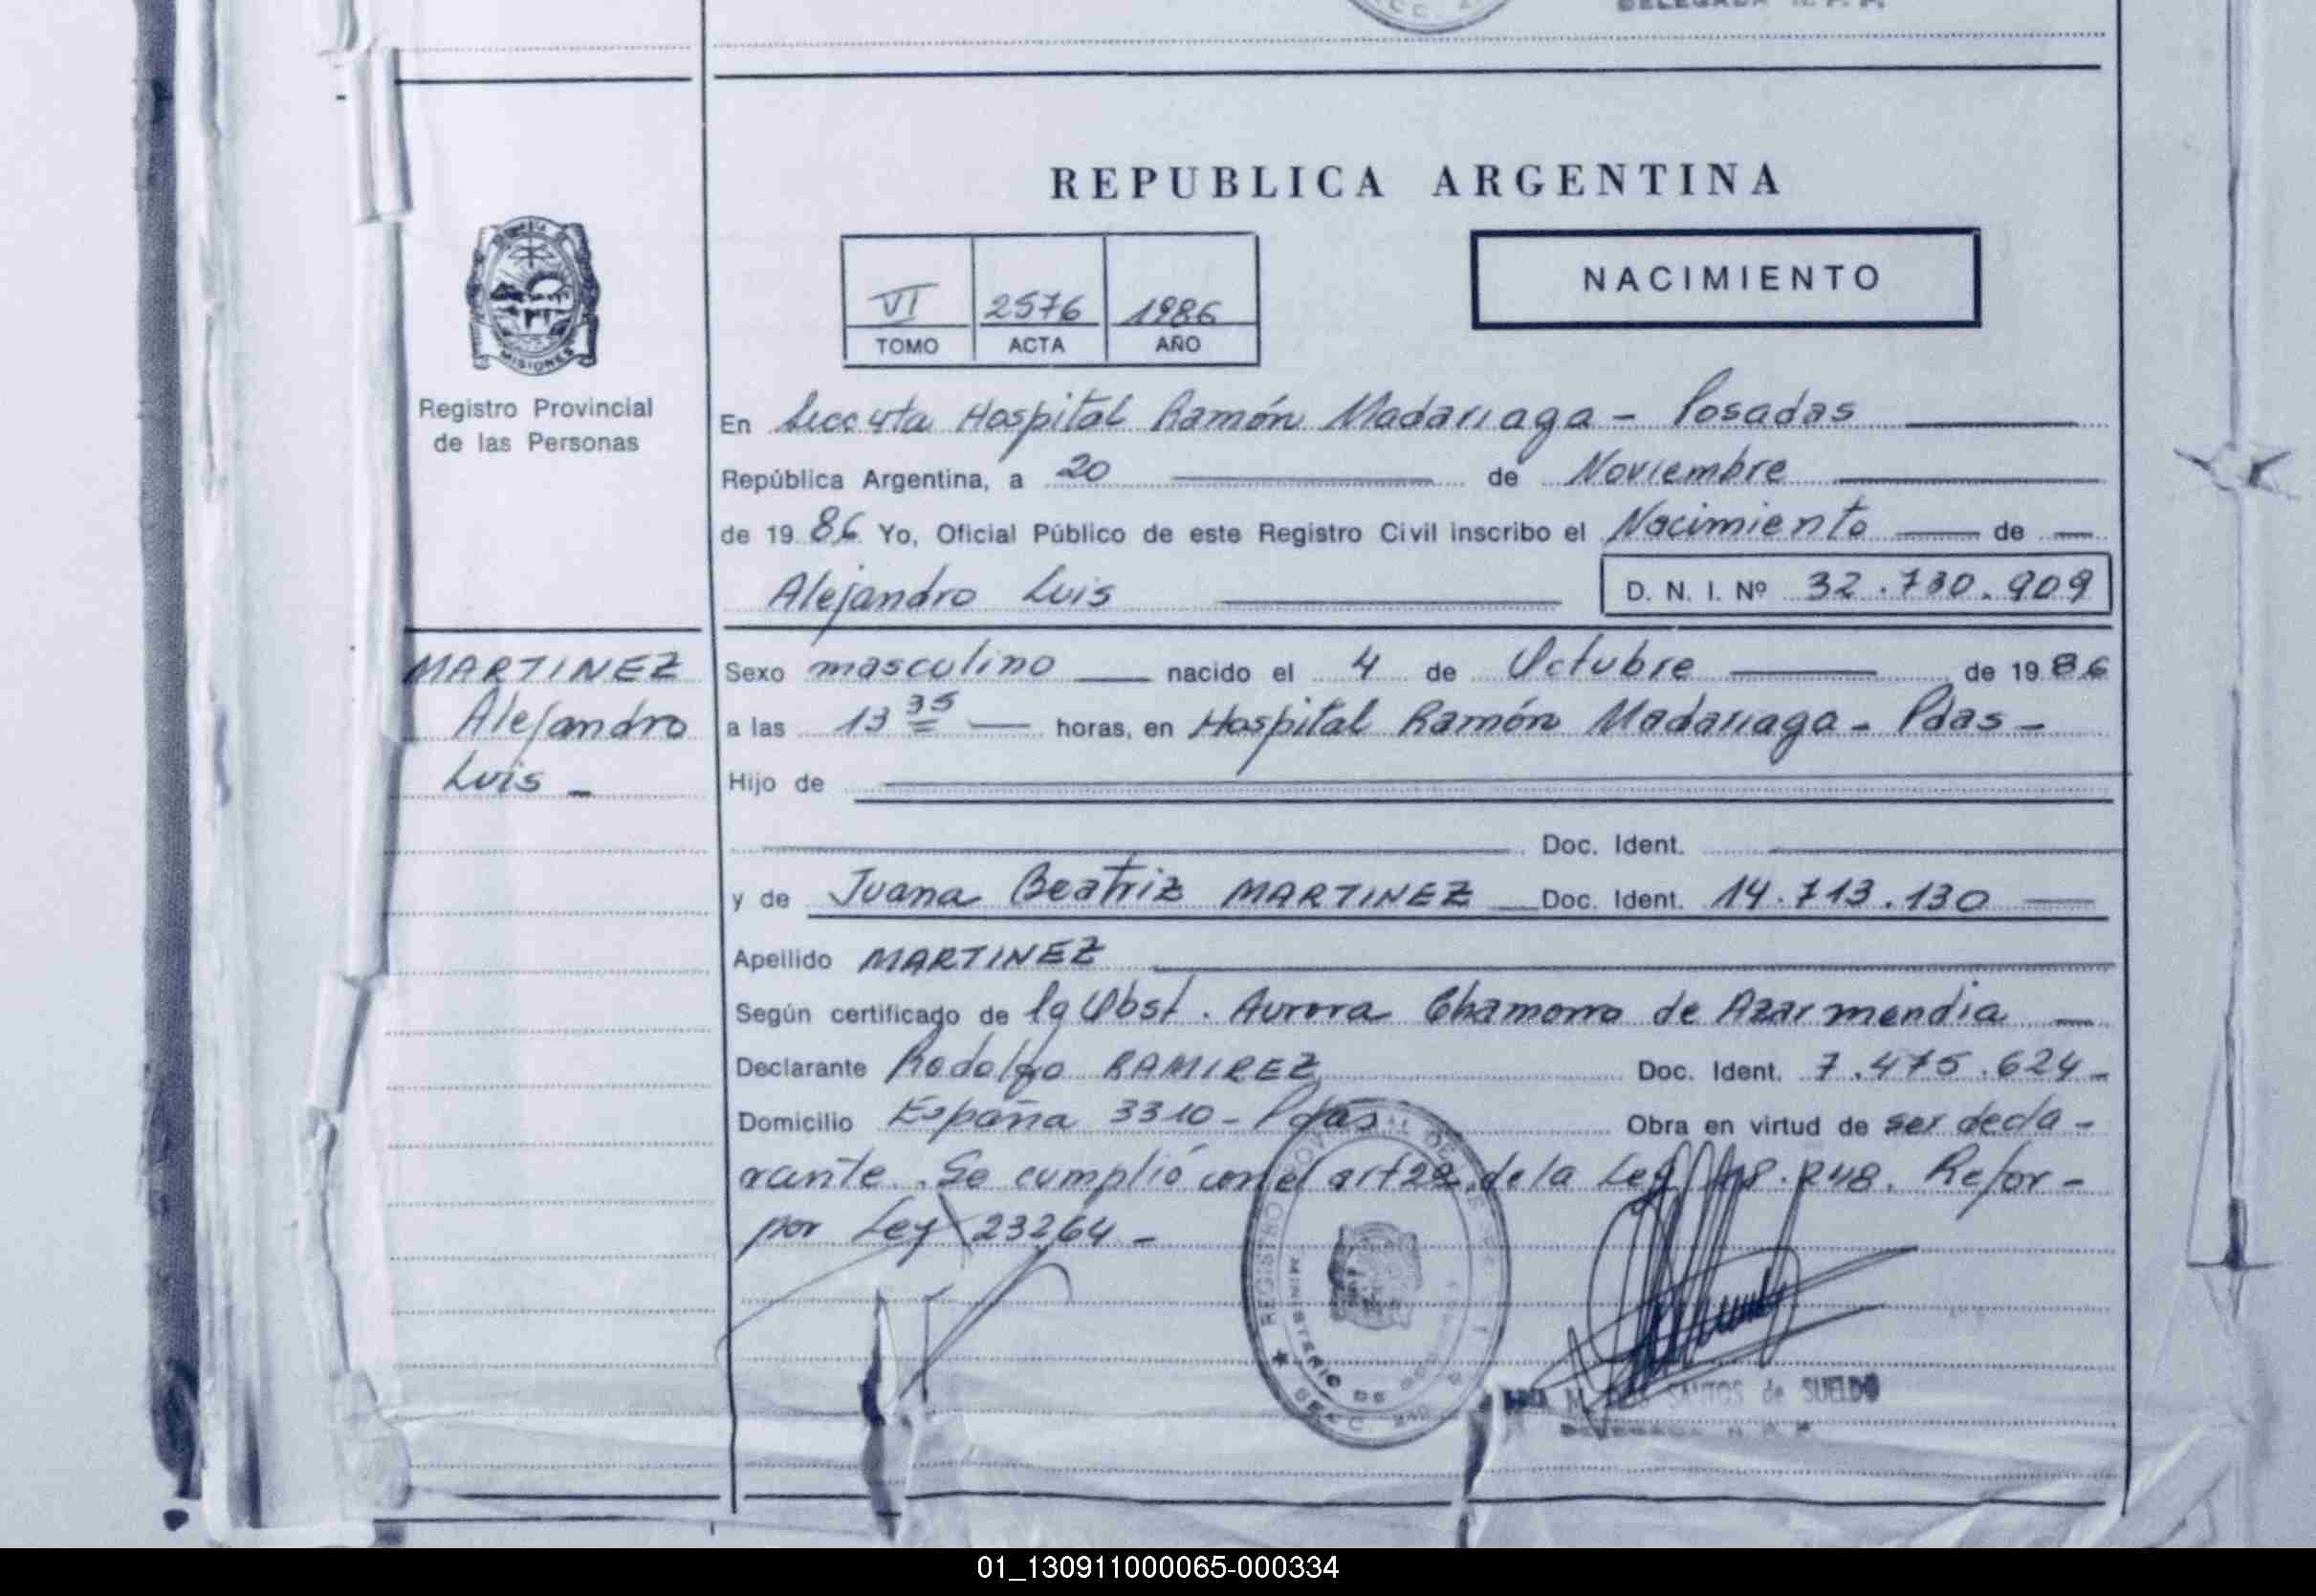 DELEGADA R. P. P.
REPUBLICA ARGENTINA
NACIMIENTO
VI 2576 1986
TOMO ACTA AÑO
MISIONES
Registro Provincial
de las Personas
En Secc 4ta Hospital Ramón Madariaga - Posadas
República Argentina, a 20 de Noviembre
de 1986 Yo, Oficial Público de este Registro Civil inscribo el Nacimiento de
Alejandro Luis D. N. I. Nº 32.730.909
MARTINEZ
Alejandro
Luis -
Sexo masculino nacido el 4 de Octubre de 1986
a las 13 35 horas, en Hospital Ramón Madariaga - Pdas -
Hijo de
Doc. Ident.
y de Juana Beatriz MARTINEZ Doc. Ident. 14.713.130
Apellido MARTINEZ
Según certificado de la Obst. Aurora Chamorro de Azarmendia
Declarante Rodolfo RAMIREZ Doc. Ident. 7.475.624-
Domicilio España 3310 - Pdas Obra en virtud de ser decla-
rante. Se cumplió con el art 28 de la Ley 18.248. Refor-
por Ley 23264 -
REGISTRO PROVINCIAL DE
MINISTERIO DE
SECC.
M. DOS SANTOS de SUELDO
DELEGADA
01_130911000065-000334